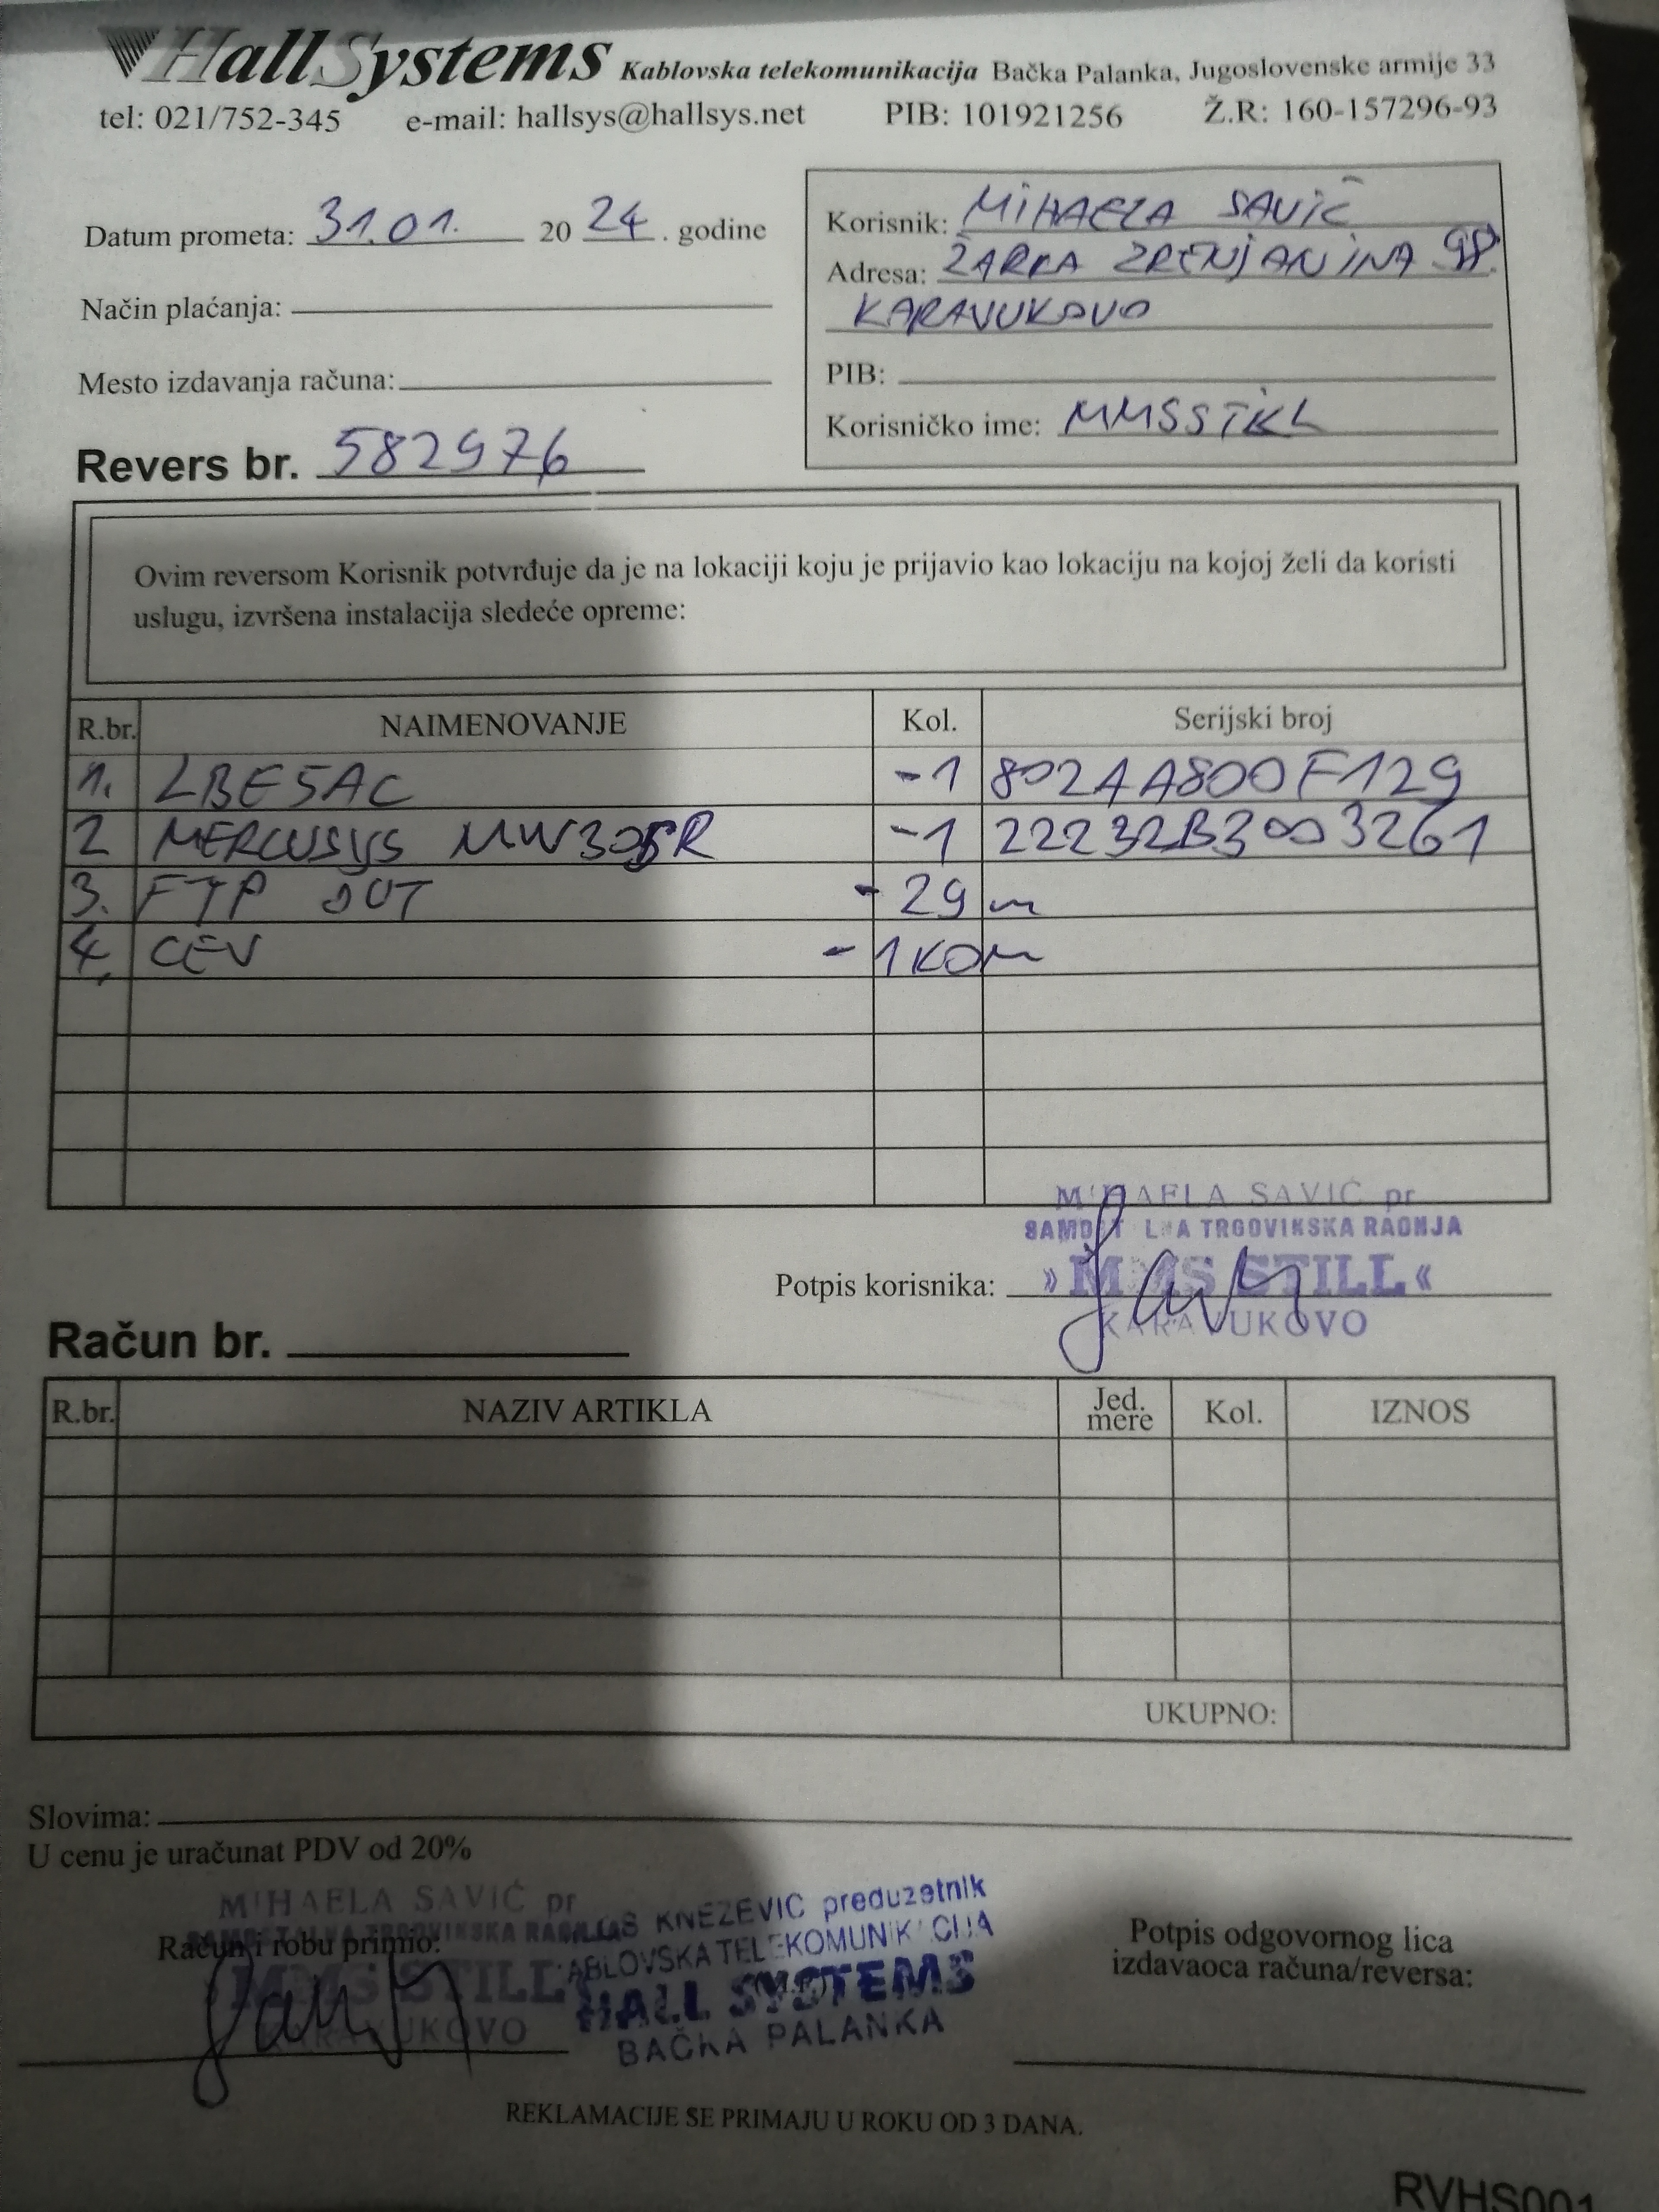 HallSystems Kablovska telekomunikacija Bačka Palanka, Jugoslovenske armije 33
tel: 021/752-345 e-mail: hallsys@hallsys.net PIB: 101921256 Ž.R: 160-157296-93
Datum prometa: 31.01. 2024. godine
Način plaćanja:
Mesto izdavanja računa:
Revers br. 582976
Korisnik: MIHAELA SAVIĆ
Adresa: ŽARKA ZRENJANINA 98.
KARAVUKOVO
PIB:
Korisničko ime: MMSSTKL
Ovim reversom Korisnik potvrđuje da je na lokaciji koju je prijavio kao lokaciju na kojoj želi da koristi
uslugu, izvršena instalacija sledeće opreme:
R.br. NAIMENOVANJE Kol. Serijski broj
1. LBE5AC -1 802AA800F129
2 MERCUSYS -1 22232B3003261
3. FTP OUT - 29 m
4. CEV - 1 KOM
MIHAELA SAVIĆ pr
SAMOSTALNA TRGOVINSKA RADNJA
Potpis korisnika: »MMS STILL«
KARAVUKOVO
Račun br.
R.br. NAZIV ARTIKLA Jed. mere Kol. IZNOS
UKUPNO:
Slovima:
U cenu je uračunat PDV od 20%
MIHAELA SAVIĆ pr
SAMOSTALNA TRGOVINSKA RADNJA
Račun i robu primio:
MMS STILL
KARAVUKOVO
KNEZEVIC preduzetnik
KABLOVSKA TELEKOMUNIKACIJA
HALL SYSTEMS
BAČKA PALANKA
(M.P.)
Potpis odgovornog lica
izdavaoca računa/reversa:
REKLAMACIJE SE PRIMAJU U ROKU OD 3 DANA.
RVHS001